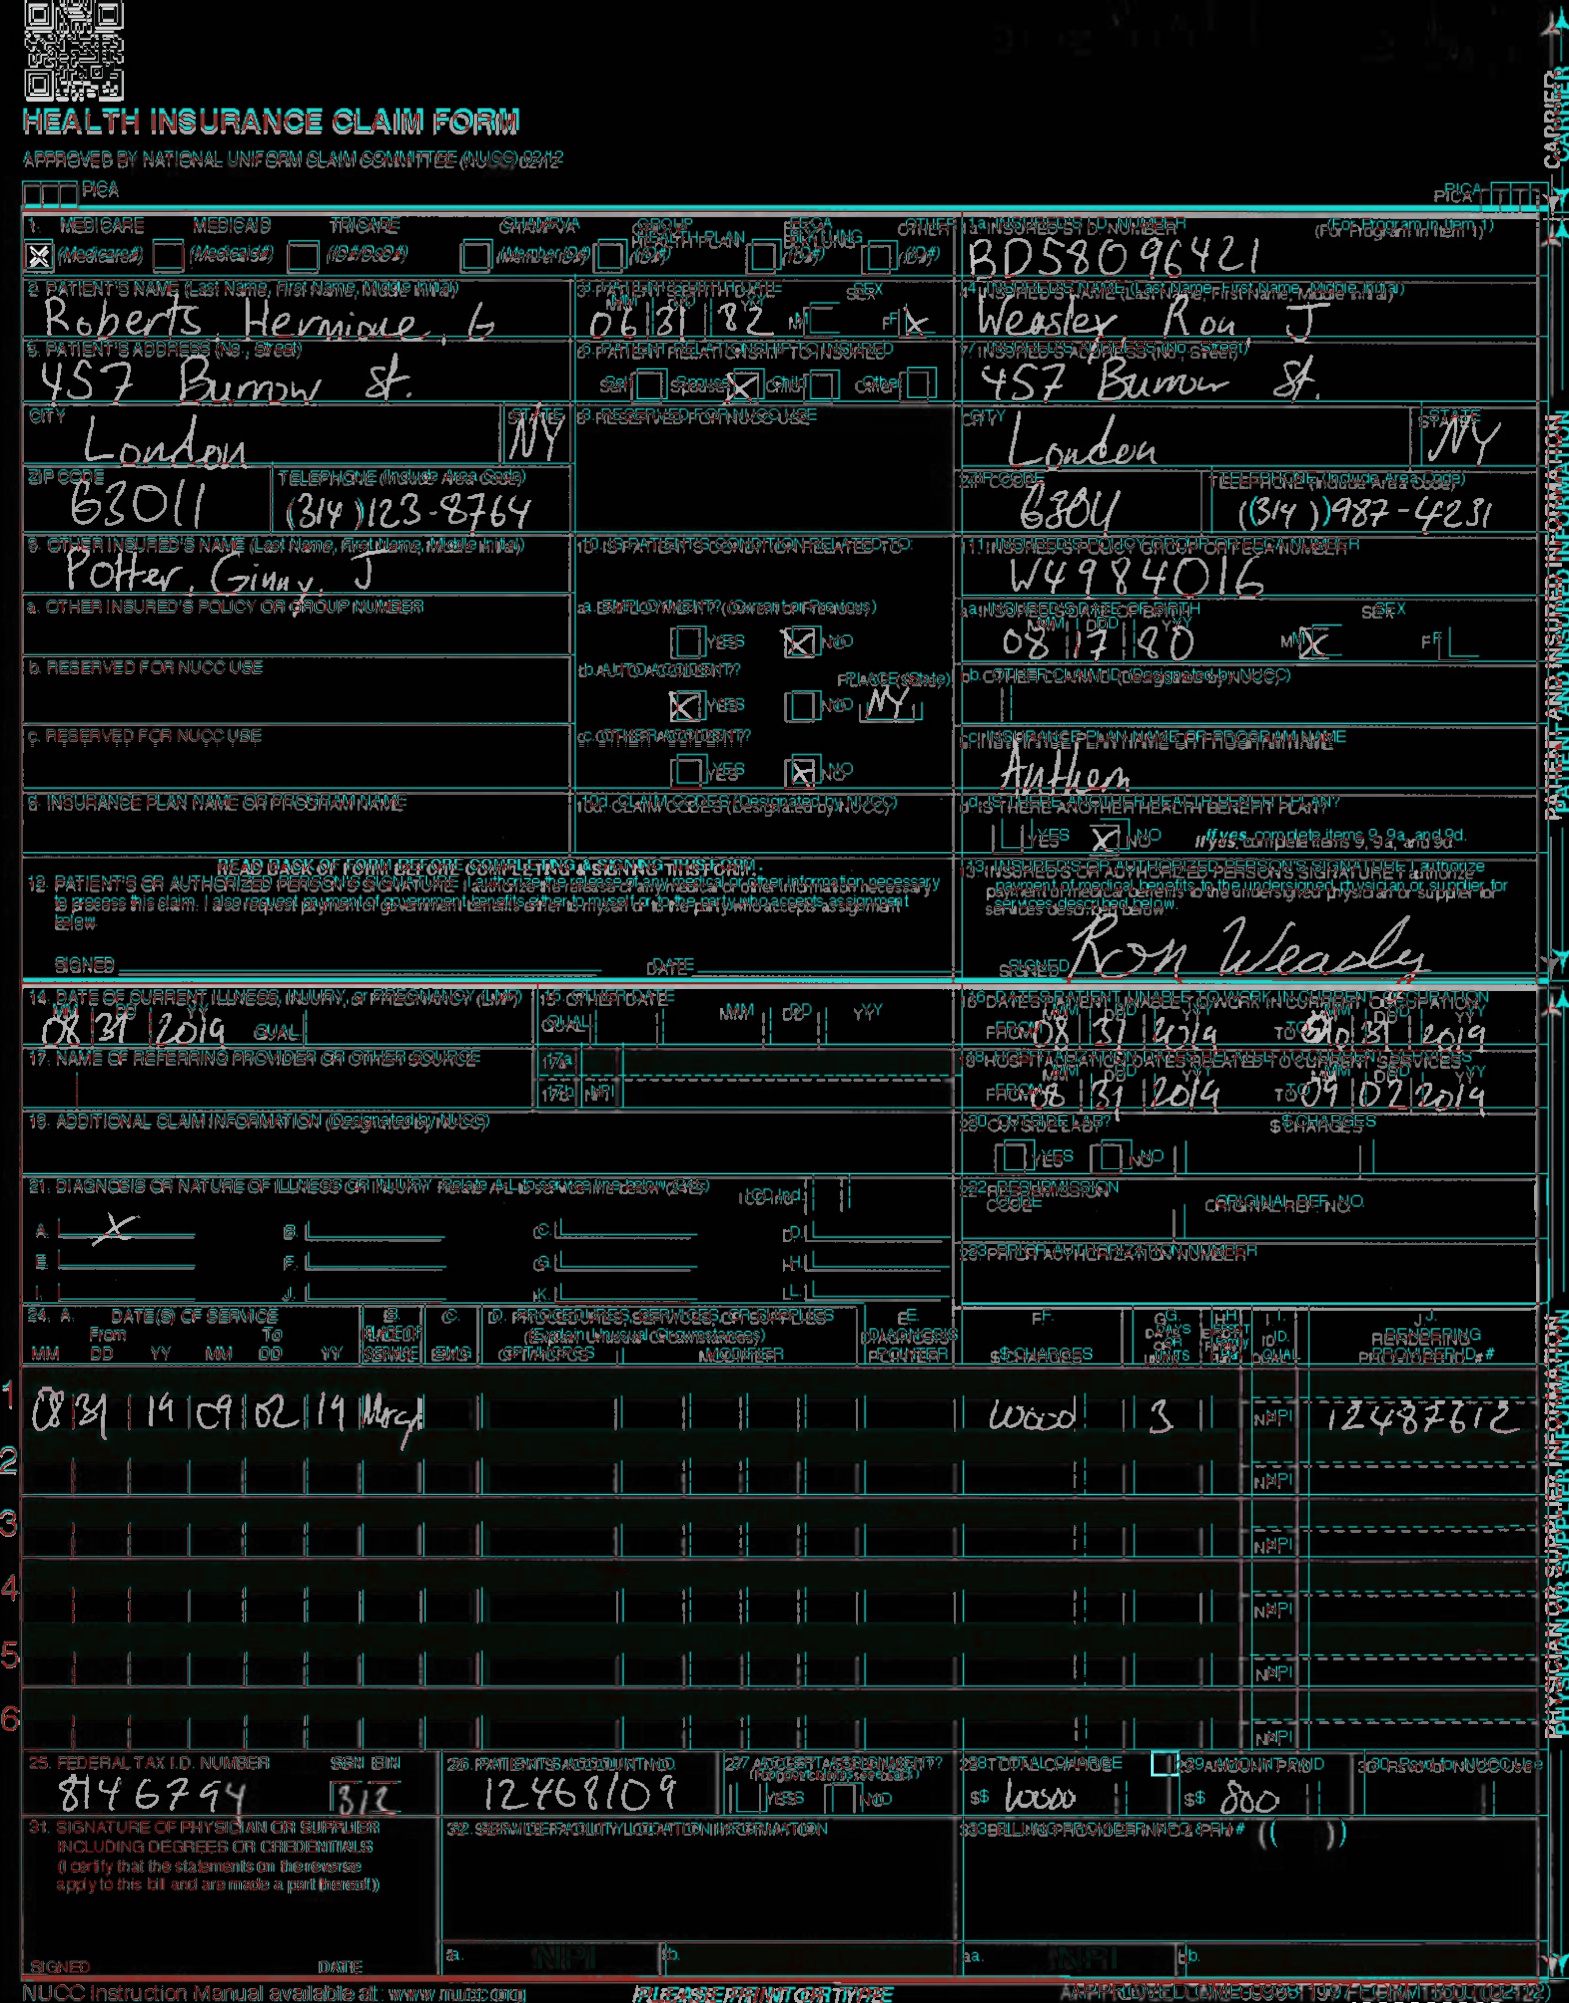 HEALTH INSURANCE CLAIM FORM
APPROVED BY NATIONAL UNIFORM CLAIM COMMITTEE (NUCC) 02/12
PICA PICA
CARRIER
1. MEDICARE MEDICAID TRICARE CHAMPVA GROUP HEALTH PLAN FECA BLK LUNG OTHER
(Medicare#) (Medicaid#) (ID#/DoD#) (Member ID#) (ID#) (ID#) (ID#)
1a. INSURED'S I.D. NUMBER (For Program in Item 1)
BD58096421
2. PATIENT'S NAME (Last Name, First Name, Middle Initial)
Roberts, Hermione, G
3. PATIENT'S BIRTH DATE SEX
MM DD YY
06 31 82 M F X
4. INSURED'S NAME (Last Name, First Name, Middle Initial)
Weasley, Ron, J
5. PATIENT'S ADDRESS (No., Street)
457 Burrow St.
6. PATIENT RELATIONSHIP TO INSURED
Self Spouse X Child Other
7. INSURED'S ADDRESS (No., Street)
457 Burrow St.
CITY STATE
London NY
8. RESERVED FOR NUCC USE
CITY STATE
London NY
ZIP CODE TELEPHONE (Include Area Code)
63011 (314) 123-8764
ZIP CODE TELEPHONE (Include Area Code)
(314) 987-4231
9. OTHER INSURED'S NAME (Last Name, First Name, Middle Initial)
Potter, Ginny, J
10. IS PATIENT'S CONDITION RELATED TO:
11. INSURED'S POLICY GROUP OR FECA NUMBER
W4984016
a. OTHER INSURED'S POLICY OR GROUP NUMBER
a. EMPLOYMENT? (Current or Previous)
YES X NO
a. INSURED'S DATE OF BIRTH SEX
MM DD YY
08 17 80 M X F
b. RESERVED FOR NUCC USE
b. AUTO ACCIDENT? PLACE (State)
X YES NO NY
b. OTHER CLAIM ID (Designated by NUCC)
c. RESERVED FOR NUCC USE
c. OTHER ACCIDENT?
YES X NO
c. INSURANCE PLAN NAME OR PROGRAM NAME
Anthem
d. INSURANCE PLAN NAME OR PROGRAM NAME
10d. CLAIM CODES (Designated by NUCC)
d. IS THERE ANOTHER HEALTH BENEFIT PLAN?
YES X NO If yes, complete items 9, 9a, and 9d.
READ BACK OF FORM BEFORE COMPLETING & SIGNING THIS FORM.
12. PATIENT'S OR AUTHORIZED PERSON'S SIGNATURE I authorize the release of any medical or other information necessary
to process this claim. I also request payment of government benefits either to myself or to the party who accepts assignment
below.
SIGNED DATE
13. INSURED'S OR AUTHORIZED PERSON'S SIGNATURE I authorize
payment of medical benefits to the undersigned physician or supplier for
services described below.
SIGNED Ron Weasley
PATIENT AND INSURED INFORMATION
14. DATE OF CURRENT ILLNESS, INJURY, or PREGNANCY (LMP)
MM DD YY
08 31 2019 QUAL.
15. OTHER DATE
QUAL. MM DD YY
16. DATES PATIENT UNABLE TO WORK IN CURRENT OCCUPATION
MM DD YY MM DD YY
FROM 08 31 2019 TO 31 2019
17. NAME OF REFERRING PROVIDER OR OTHER SOURCE
17a.
17b. NPI
18. HOSPITALIZATION DATES RELATED TO CURRENT SERVICES
MM DD YY MM DD YY
FROM 08 31 2019 TO 09 02 2019
19. ADDITIONAL CLAIM INFORMATION (Designated by NUCC)
20. OUTSIDE LAB? $ CHARGES
YES NO
21. DIAGNOSIS OR NATURE OF ILLNESS OR INJURY Relate A-L to service line below (24E) ICD Ind.
A. X B. C. D.
E. F. G. H.
I. J. K. L.
22. RESUBMISSION CODE ORIGINAL REF. NO.
23. PRIOR AUTHORIZATION NUMBER
24. A. DATE(S) OF SERVICE B. C. D. PROCEDURES, SERVICES, OR SUPPLIES E. F. G. H. I. J.
From To PLACE OF (Explain Unusual Circumstances) DIAGNOSIS DAYS OR EPSDT ID. RENDERING
MM DD YY MM DD YY SERVICE EMG CPT/HCPCS MODIFIER POINTER $ CHARGES UNITS QUAL. PROVIDER ID. #
1 08 31 19 09 02 19 3 NPI 12487612
2 NPI
3 NPI
4 NPI
5 NPI
6 NPI
25. FEDERAL TAX I.D. NUMBER SSN EIN
8146794 312
26. PATIENT'S ACCOUNT NO.
12468109
27. ACCEPT ASSIGNMENT?
(For govt. claims, see back)
YES NO
28. TOTAL CHARGE
$ 10000
29. AMOUNT PAID
$ 800
30. Rsvd for NUCC Use
31. SIGNATURE OF PHYSICIAN OR SUPPLIER
INCLUDING DEGREES OR CREDENTIALS
(I certify that the statements on the reverse
apply to this bill and are made a part thereof.)
SIGNED DATE
32. SERVICE FACILITY LOCATION INFORMATION
a. NPI b.
33. BILLING PROVIDER INFO & PH # ( )
a. NPI b.
PHYSICIAN OR SUPPLIER INFORMATION
NUCC Instruction Manual available at: www.nucc.org
PLEASE PRINT OR TYPE